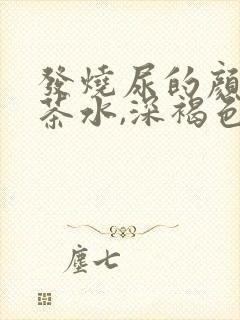 發燒尿的顏
茶水,深褐色
塵七